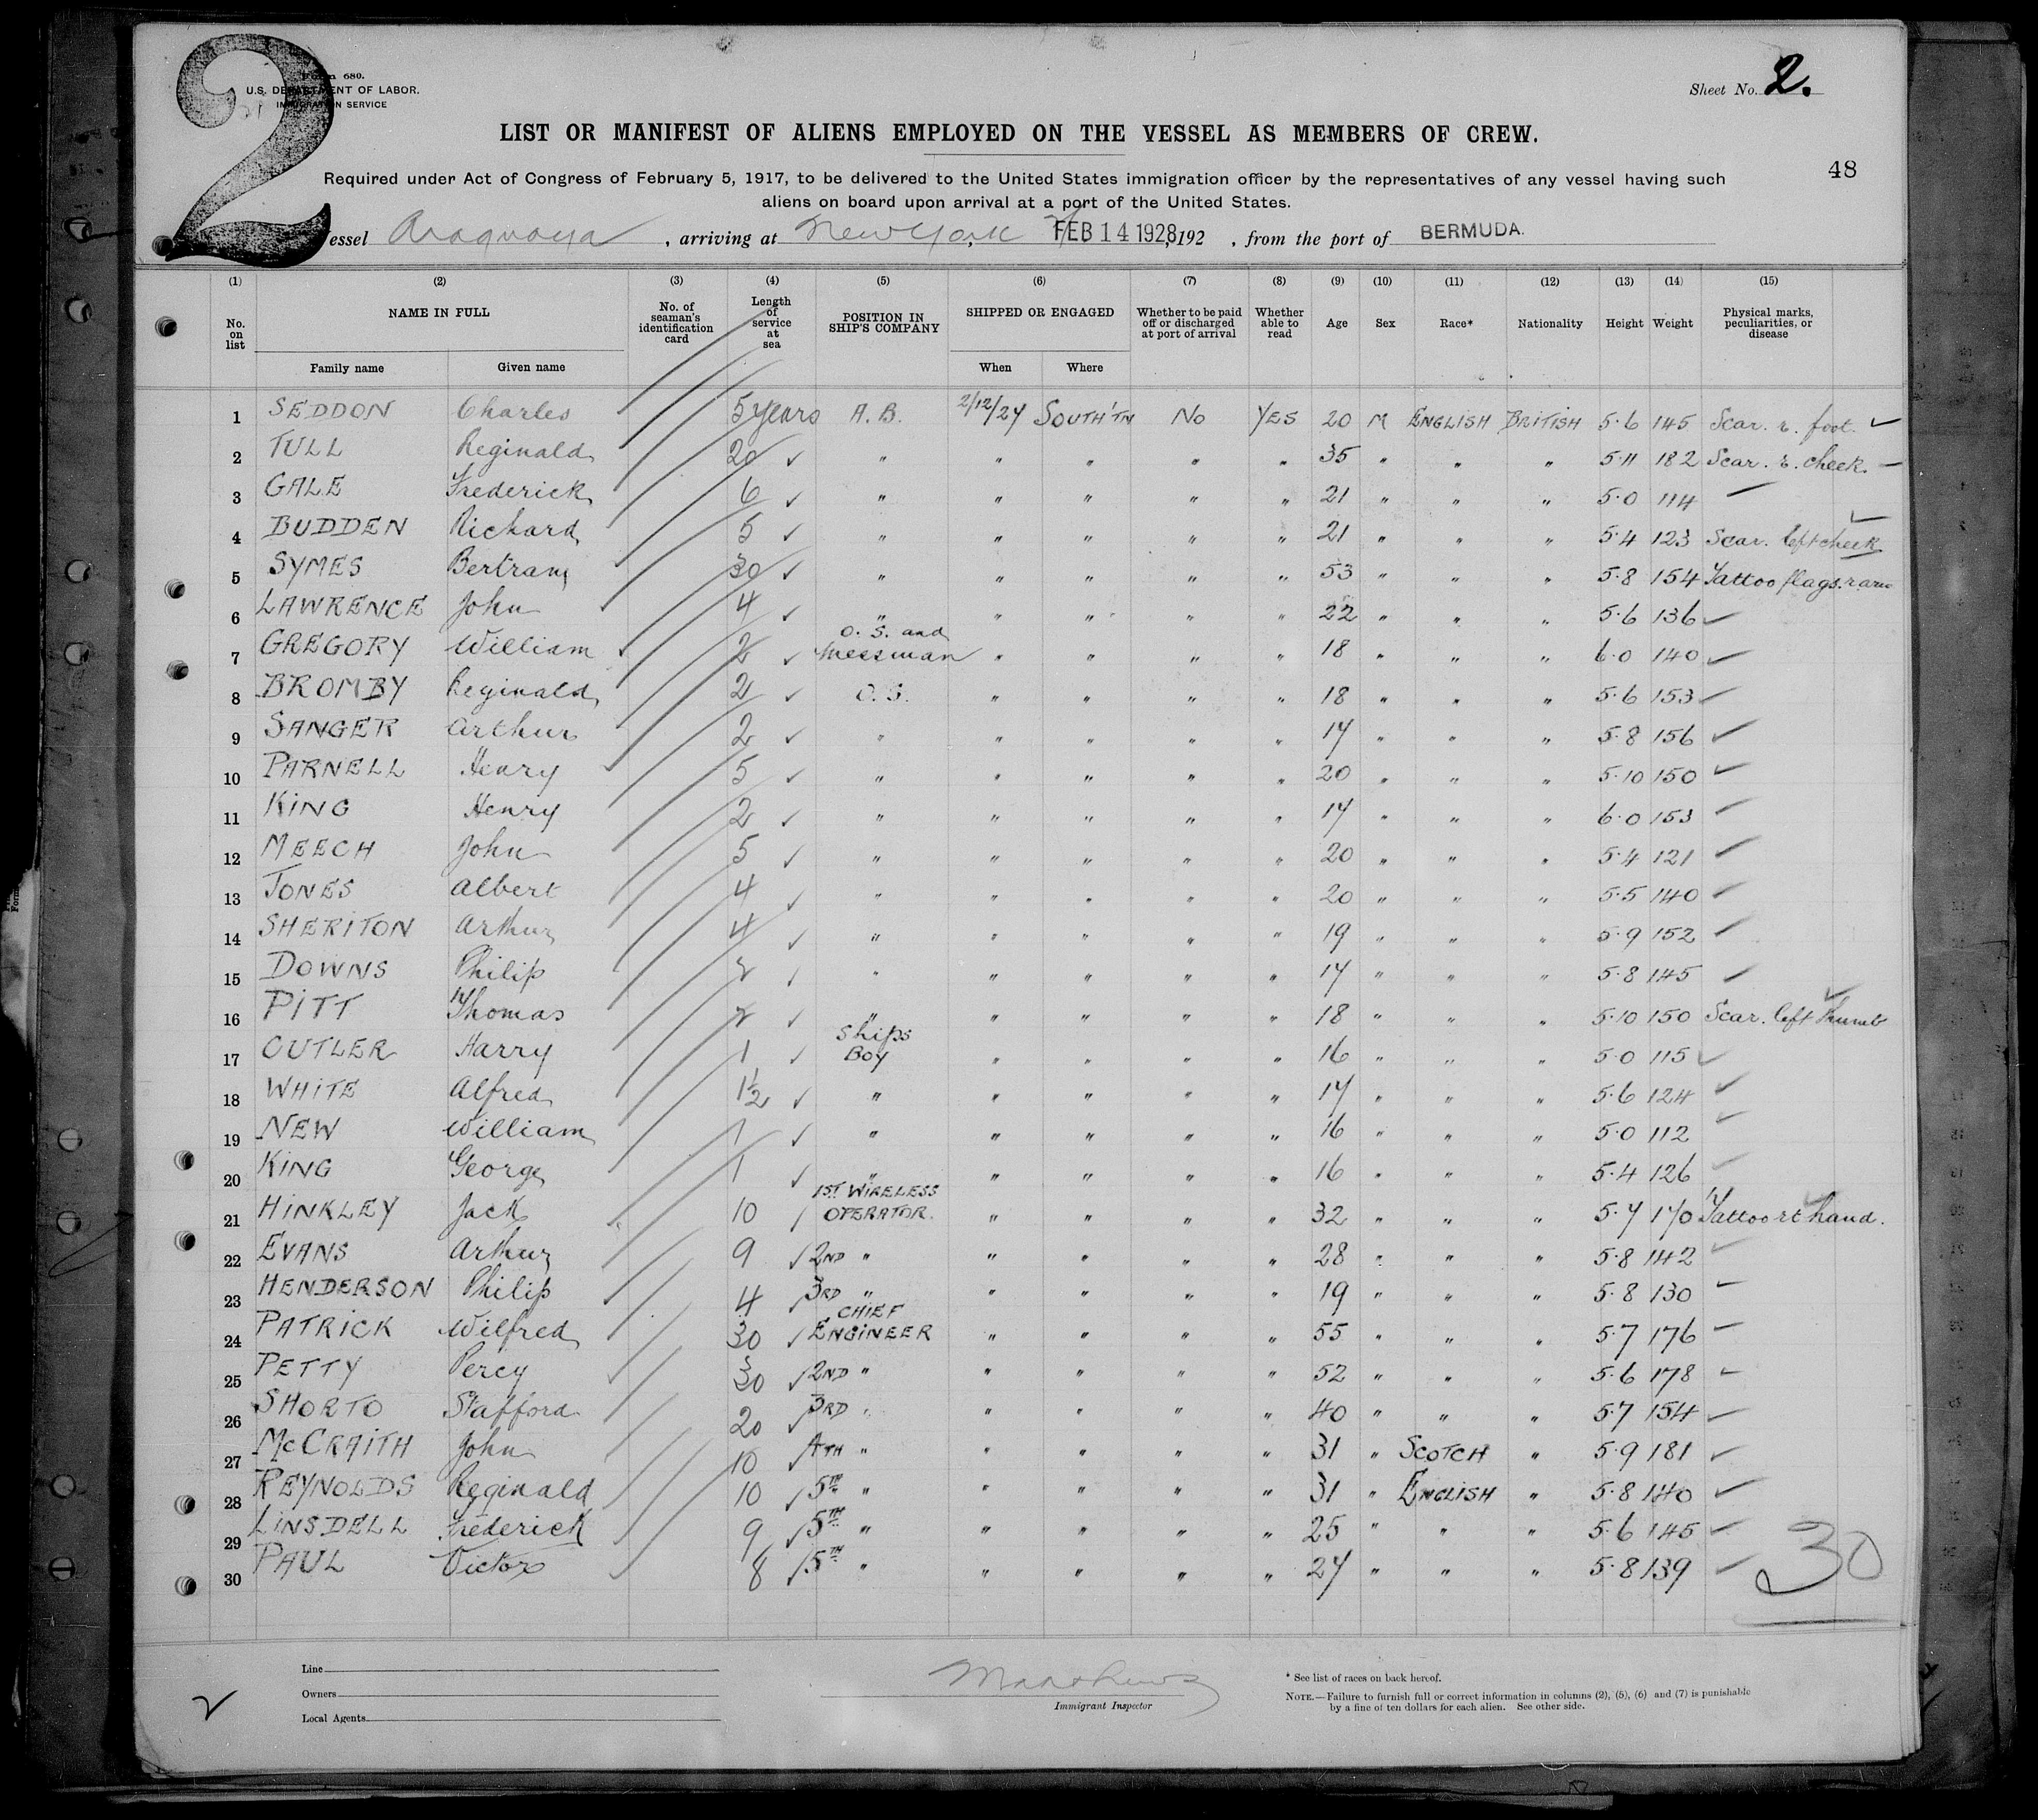 2
Form 680.
U.S. DEPARTMENT OF LABOR.
IMMIGRATION SERVICE
Sheet No. 2.
LIST OR MANIFEST OF ALIENS EMPLOYED ON THE VESSEL AS MEMBERS OF CREW.
48
Required under Act of Congress of February 5, 1917, to be delivered to the United States immigration officer by the representatives of any vessel having such
aliens on board upon arrival at a port of the United States.
Vessel Araguaya, arriving at New York, FEB 14 1928, 192 , from the port of BERMUDA.
(1) (2) (3) (4) (5) (6) (7) (8) (9) (10) (11) (12) (13) (14) (15)
No. on list NAME IN FULL Family name Given name No. of seaman's identification card Length of service at sea POSITION IN SHIP'S COMPANY SHIPPED OR ENGAGED When Where Whether to be paid off or discharged at port of arrival Whether able to read Age Sex Race* Nationality Height Weight Physical marks, peculiarities, or disease
1 SEDDON Charles 5 years A.B. 2/12/27 SOUTH'TN No YES 20 M ENGLISH BRITISH 5.6 145 Scar. r. foot.
2 TULL Reginald 20 " " " " " 35 " " " 5.11 182 Scar. r. cheek.
3 GALE Frederick 6 " " " " " 21 " " " 5.0 114
4 BUDDEN Richard 5 " " " " " 21 " " " 5.4 123 Scar. left cheek
5 SYMES Bertram 30 " " " " " 53 " " " 5.8 154 Tattoo flags. r arm
6 LAWRENCE John 4 " " " " " 22 " " " 5.6 136
7 GREGORY William 2 O.S. and Messman " " " " 18 " " " 6.0 140
8 BROMBY Reginald 2 O.S. " " " " 18 " " " 5.6 153
9 SANGER Arthur 2 " " " " " 17 " " " 5.8 156
10 PARNELL Henry 5 " " " " " 20 " " " 5.10 150
11 KING Henry 2 " " " " " 17 " " " 6.0 153
12 MEECH John 5 " " " " " 20 " " " 5.4 121
13 JONES Albert 4 " " " " " 20 " " " 5.5 140
14 SHERITON Arthur 4 " " " " " 19 " " " 5.9 152
15 DOWNS Philip 2 " " " " " 17 " " " 5.8 145
16 PITT Thomas 2 " " " " " 18 " " " 5.10 150 Scar. left Thumb
17 CUTLER Harry 1 Ships Boy " " " " 16 " " " 5.0 115
18 WHITE Alfred 1½ " " " " " 17 " " " 5.6 124
19 NEW William 1 " " " " " 16 " " " 5.0 112
20 KING George 1 " " " " " 16 " " " 5.4 126
21 HINKLEY Jack 10 1ST WIRELESS OPERATOR. " " " " 32 " " " 5.7 170 Tattoo rt hand.
22 EVANS Arthur 9 2ND " " " " " 28 " " " 5.8 142
23 HENDERSON Philip 4 3RD " " " " " 19 " " " 5.8 130
24 PATRICK Wilfred 30 CHIEF ENGINEER " " " " 55 " " " 5.7 176
25 PETTY Percy 30 2ND " " " " " 52 " " " 5.6 178
26 SHORTO Stafford 20 3RD " " " " " 40 " " " 5.7 154
27 McCRAITH John 10 4TH " " " " " 31 " SCOTCH " 5.9 181
28 REYNOLDS Reginald 10 5TH " " " " " 31 " ENGLISH " 5.8 140
29 LINSDELL Frederick 9 5TH " " " " " 25 " " " 5.6 145
30 PAUL Victor 8 5TH " " " " " 27 " " " 5.8 139
30
Line
Owners
Local Agents
Matthews
Immigrant Inspector
* See list of races on back hereof.
NOTE.—Failure to furnish full or correct information in columns (2), (5), (6) and (7) is punishable
by a fine of ten dollars for each alien. See other side.